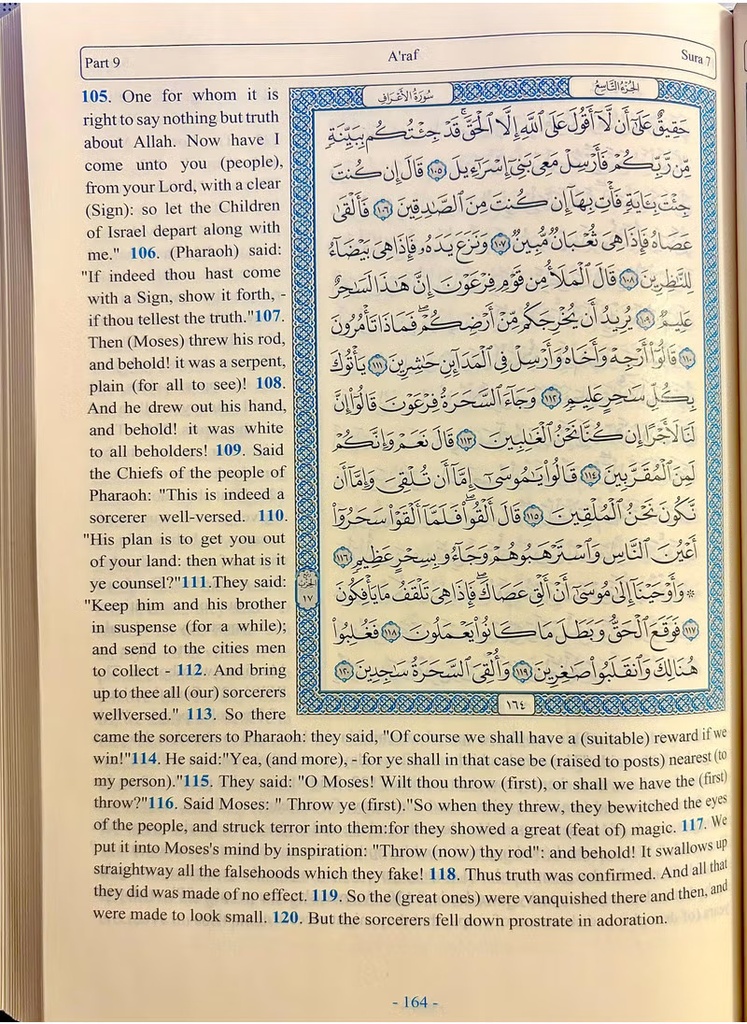 Part 9
A'raf
Sura 7
105. One for whom it is
right to say nothing but truth
about Allah. Now have I
come unto you (people),
from your Lord, with a clear
(Sign): so let the Children
of Israel depart along with
me." 106. (Pharaoh) said:
"If indeed thou hast come
with a Sign, show it forth, -
if thou tellest the truth."107.
Then (Moses) threw his rod,
and behold! it was a serpent,
plain (for all to see)! 108.
And he drew out his hand,
and behold! it was white
to all beholders! 109. Said
the Chiefs of the people of
Pharaoh: "This is indeed a
sorcerer well-versed. 110.
"His plan is to get you out
of your land: then what is it
ye counsel?"111.They said:
"Keep him and his brother
in suspense (for a while);
and send to the cities men
to collect - 112. And bring
up to thee all (our) sorcerers
wellversed." 113. So there
الجزء التاسع
سورة الأعراف
حَقِيقٌ عَلَىٰٓ أَن لَّآ أَقُولَ عَلَى ٱللَّهِ إِلَّا ٱلْحَقَّ ۚ قَدْ جِئْتُكُم بِبَيِّنَةٍ
مِّن رَّبِّكُمْ فَأَرْسِلْ مَعِىَ بَنِىٓ إِسْرَٰٓءِيلَ ١٠٥ قَالَ إِن كُنتَ
جِئْتَ بِـَٔايَةٍ فَأْتِ بِهَآ إِن كُنتَ مِنَ ٱلصَّٰدِقِينَ ١٠٦ فَأَلْقَىٰ
عَصَاهُ فَإِذَا هِىَ ثُعْبَانٌ مُّبِينٌ ١٠٧ وَنَزَعَ يَدَهُۥ فَإِذَا هِىَ بَيْضَآءُ
لِلنَّٰظِرِينَ ١٠٨ قَالَ ٱلْمَلَأُ مِن قَوْمِ فِرْعَوْنَ إِنَّ هَٰذَا لَسَٰحِرٌ
عَلِيمٌ ١٠٩ يُرِيدُ أَن يُخْرِجَكُم مِّنْ أَرْضِكُمْ ۖ فَمَاذَا تَأْمُرُونَ
١١٠ قَالُوٓا۟ أَرْجِهْ وَأَخَاهُ وَأَرْسِلْ فِى ٱلْمَدَآئِنِ حَٰشِرِينَ ١١١ يَأْتُوكَ
بِكُلِّ سَٰحِرٍ عَلِيمٍ ١١٢ وَجَآءَ ٱلسَّحَرَةُ فِرْعَوْنَ قَالُوٓا۟ إِنَّ
لَنَا لَأَجْرًا إِن كُنَّا نَحْنُ ٱلْغَٰلِبِينَ ١١٣ قَالَ نَعَمْ وَإِنَّكُمْ
لَمِنَ ٱلْمُقَرَّبِينَ ١١٤ قَالُوا۟ يَٰمُوسَىٰٓ إِمَّآ أَن تُلْقِىَ وَإِمَّآ أَن
نَّكُونَ نَحْنُ ٱلْمُلْقِينَ ١١٥ قَالَ أَلْقُوا۟ ۖ فَلَمَّآ أَلْقَوْا۟ سَحَرُوٓا۟
أَعْيُنَ ٱلنَّاسِ وَٱسْتَرْهَبُوهُمْ وَجَآءُو بِسِحْرٍ عَظِيمٍ ١١٦
۞ وَأَوْحَيْنَآ إِلَىٰ مُوسَىٰٓ أَنْ أَلْقِ عَصَاكَ ۖ فَإِذَا هِىَ تَلْقَفُ مَا يَأْفِكُونَ
١١٧ فَوَقَعَ ٱلْحَقُّ وَبَطَلَ مَا كَانُوا۟ يَعْمَلُونَ ١١٨ فَغُلِبُوا۟
هُنَالِكَ وَٱنقَلَبُوا۟ صَٰغِرِينَ ١١٩ وَأُلْقِىَ ٱلسَّحَرَةُ سَٰجِدِينَ ١٢٠
١٧
١٦٤
came the sorcerers to Pharaoh: they said, "Of course we shall have a (suitable) reward if we
win!"114. He said:"Yea, (and more), - for ye shall in that case be (raised to posts) nearest (to
my person)."115. They said: "O Moses! Wilt thou throw (first), or shall we have the (first)
throw?"116. Said Moses: " Throw ye (first)."So when they threw, they bewitched the eyes
of the people, and struck terror into them:for they showed a great (feat of) magic. 117. We
put it into Moses's mind by inspiration: "Throw (now) thy rod": and behold! It swallows up
straightway all the falsehoods which they fake! 118. Thus truth was confirmed. And all that
they did was made of no effect. 119. So the (great ones) were vanquished there and then, and
were made to look small. 120. But the sorcerers fell down prostrate in adoration.
- 164 -